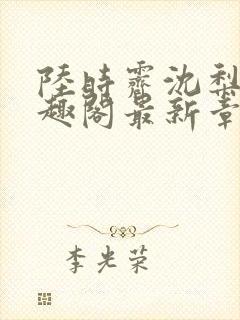 陸時霽沈梨
趣閣最新章
李光荣